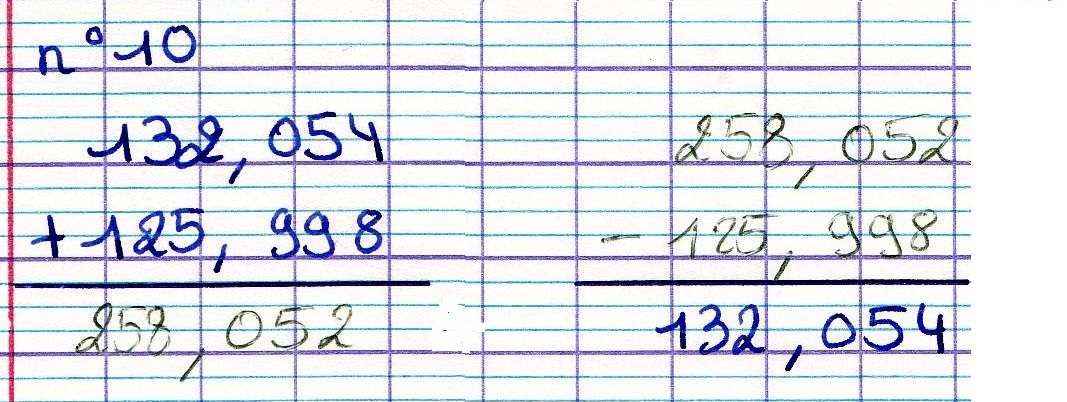 n° 10
132,054
+ 125,998
258,052
258,052
- 125,998
132,054